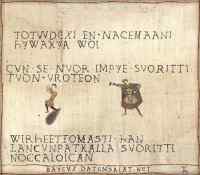 TOTVDEXI EN NACEMAANI
HYWAXYA WOI
CVN SE NVOR IMPYE SVORITTI
TVON VROTEON
WIRHEETTOMASTI HAN
LANCVNPATKALLA SVORITTI
NOCCALOICAN